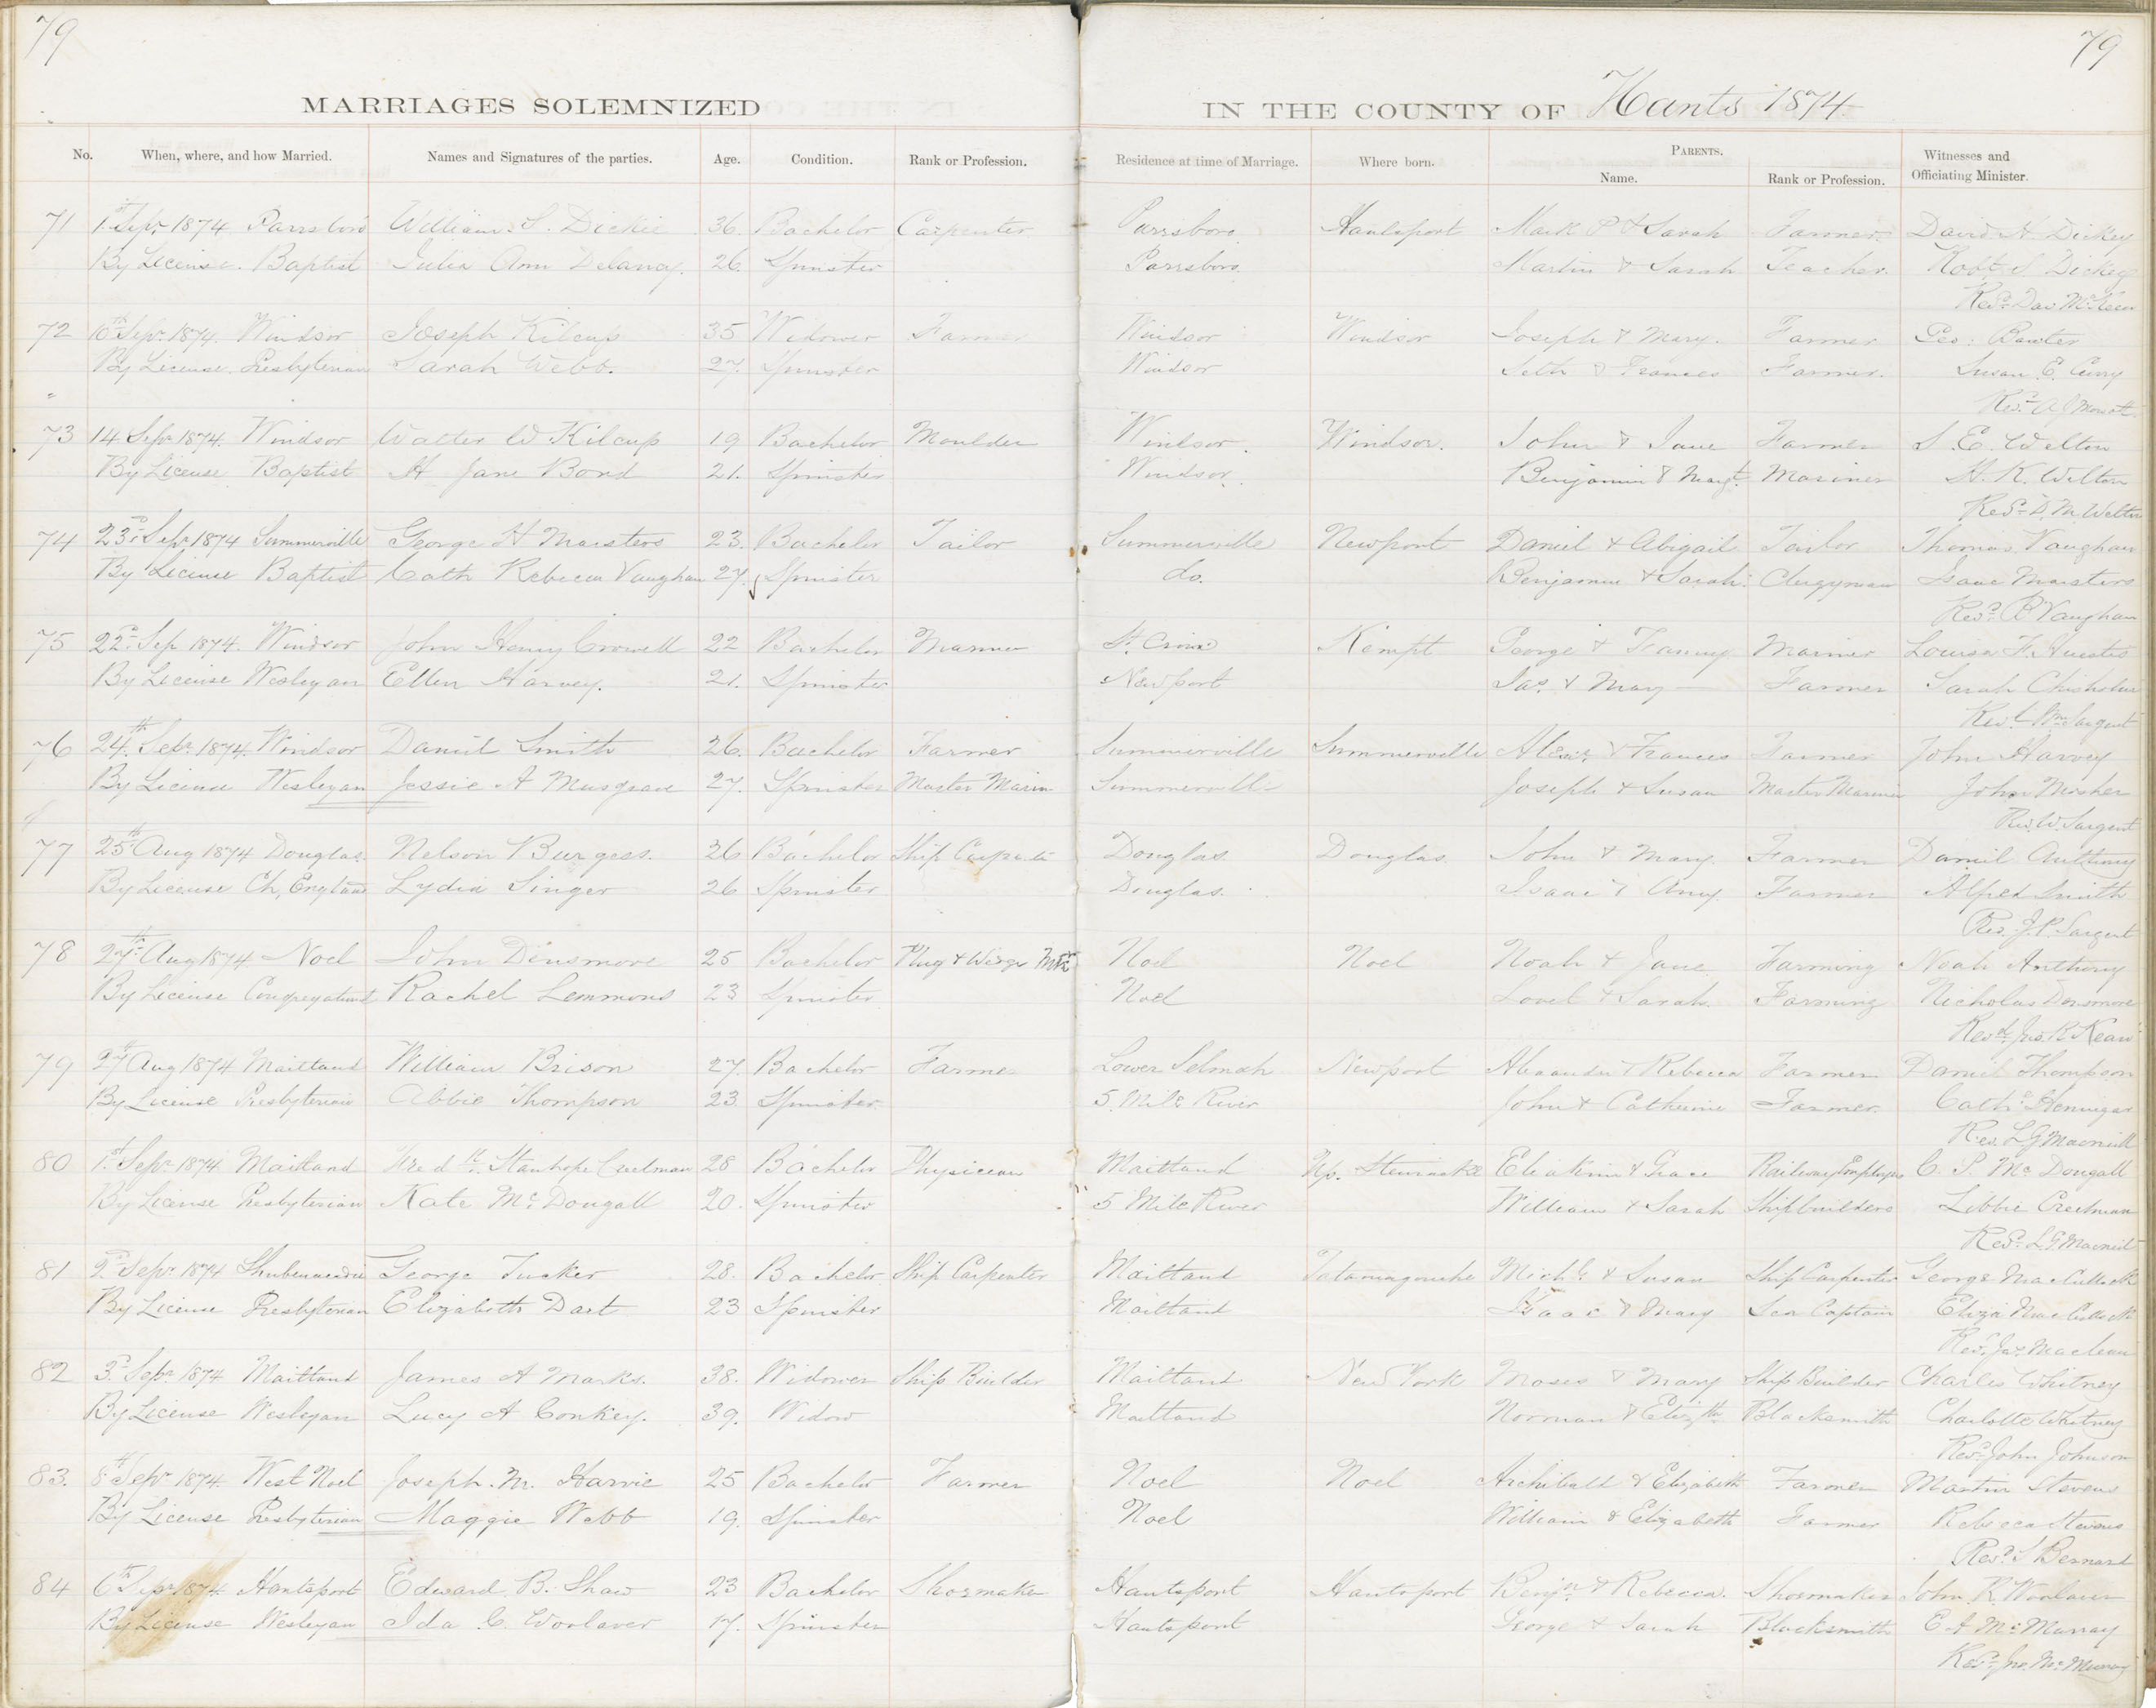 79
79
MARRIAGES SOLEMNIZED IN THE COUNTY OF Hants 1874.
No. When, where, and how Married. Names and Signatures of the parties. Age. Condition. Rank or Profession. Residence at time of Marriage. Where born. PARENTS. Name. Rank or Profession. Witnesses and Officiating Minister.
71 1st Sepr 1874. Parrsboro William S. Dickie 36. Bachelor Carpenter Parrsboro Hantsport Mark P & Sarah Farmer David H. Dickey
By License. Baptist Julia Ann Delancy. 26. Spinster Parrsboro Martin & Sarah Teacher. Robt S Dickey
Revd
72 10th Sepr 1874. Windsor Joseph Kilcup 35 Widower Farmer Windsor Windsor Joseph & Mary. Farmer Geo:
By License. Presbyterian Sarah Webb. 27. Spinster Windsor Seth & Frances Farmer. Susan E. Curry
Revd A J Mowatt
73 14 Sepr 1874. Windsor Walter W Kilcup 19 Bachelor Moulder Windsor. Windsor. John & Jane Farmer S. E. Welton
By License Baptist H Jane Bond 21. Spinster Windsor. Benjamin & Margt. Mariner H. K. Welton
Revd D. M. Welton
74 23rd Sepr 1874 Summerville George H Masters 23. Bachelor Tailor Summerville Newport Daniel & Abigail Tailor Thomas Vaughan
By License Baptist Cath Rebecca Vaughan 27. Spinster do. Benjamin & Sarah. Clergyman Isaac Masters
Revd B Vaughan
75 22d Sep 1874. Windsor John Henry Crowell 22 Bachelor Mariner St. Croix Kempt George & Fanny Mariner Louisa F. Huestis
By License Wesleyan Ellen Harvey. 21. Spinster Newport Jas. & Mary Farmer Sarah Chisholm
Revd Wm Sargent
76 24th Sepr 1874. Windsor Daniel Smith 26. Bachelor Farmer Summerville Summerville Alexr & Frances Farmer John Harvey
By License Wesleyan Jessie A Musgrave 27. Spinster Master Marin Summerville Joseph & Susan Master Mariner John Mosher
Rev. W. Sargent
77 25th Aug 1874 Douglas. Nelson Burgess. 36 Bachelor Ship Carpenter Douglas. Douglas. John & Mary. Farmer Daniel Anthony
By License Ch, England Lydia Singer 26 Spinster Douglas. Isaac & Amy Farmer Alfred Smith
Rev. J. P. Sargent
78 27th Aug 1874 Noel John Dinsmore 25 Bachelor Plug & Wedge Mkr Noel Noel Noah & Jane Farming Noah Anthony
By License Congregational Rachel Lemmons 23 Spinster Noel Lovel & Sarah. Farming Nicholas Densmore
Revd. Jas. R. Kean
79 27th Aug 1874 Maitland William Brison 27. Bachelor Farmer Lower Selmah Newport Alexander & Rebecca Farmer Daniel Thompson
By License Presbyterian Abbie Thompson 23. Spinster. 5. Mile River John & Catherine Farmer. Cathe Henniger
Rev. L G Macneill
80 1st Sepr 1874 Maitland Fredk. Stanhope Creelman 28 Bachelor Physician Maitland Up. Stewiacke Eliakim & Grace Railway Employee C. P. Mc Dougall
By License Presbyterian Kate Mc Dougall 20. Spinster 5 Mile River William & Sarah Shipbuilders Libbie Creelman
Revd. L. G. Macneill
81 2d Sepr 1874 Shubenacadie George Tucker 28. Bachelor Ship Carpenter Maitland Tatamagouche Michl. & Susan Ship Carpenter George MacCulloch
By License Presbyterian Elizabeth Dart 23 Spinster Maitland Isaac & Mary Sea Captain Eliza MacCulloch
Revd. Jas. Maclean
82 3d Sepr 1874 Maitland James A Marks. 38. Widower Ship Builder Maitland New York Moses & Mary Ship Builder Charles Whitney
By License Wesleyan Lucy A Conkey. 39. Widow Maitland Norman & Elizth Blacksmith Charlotte Whitney
Revd. John Johnson
83. 8th Sepr 1874. West Noel Joseph. M. Harvie 25 Bachelor Farmer Noel Noel Archibald & Elizabeth Farmer Martin Stevens
By License Presbyterian Maggie Webb 19. Spinster Noel William & Elizabeth Farmer Rebecca Stevens
Revd. S Bernard
84 6th Sepr 1874. Hantsport Edward B. Shaw 23 Bachelor Shoemaker Hantsport Hantsport Benjn. & Rebecca. Shoemaker John R. Woolaver
By License Wesleyan Ida C. Woolaver 17. Spinster Hantsport George & Sarah Blacksmith E A McMurray
Revd. Jno. McMurray